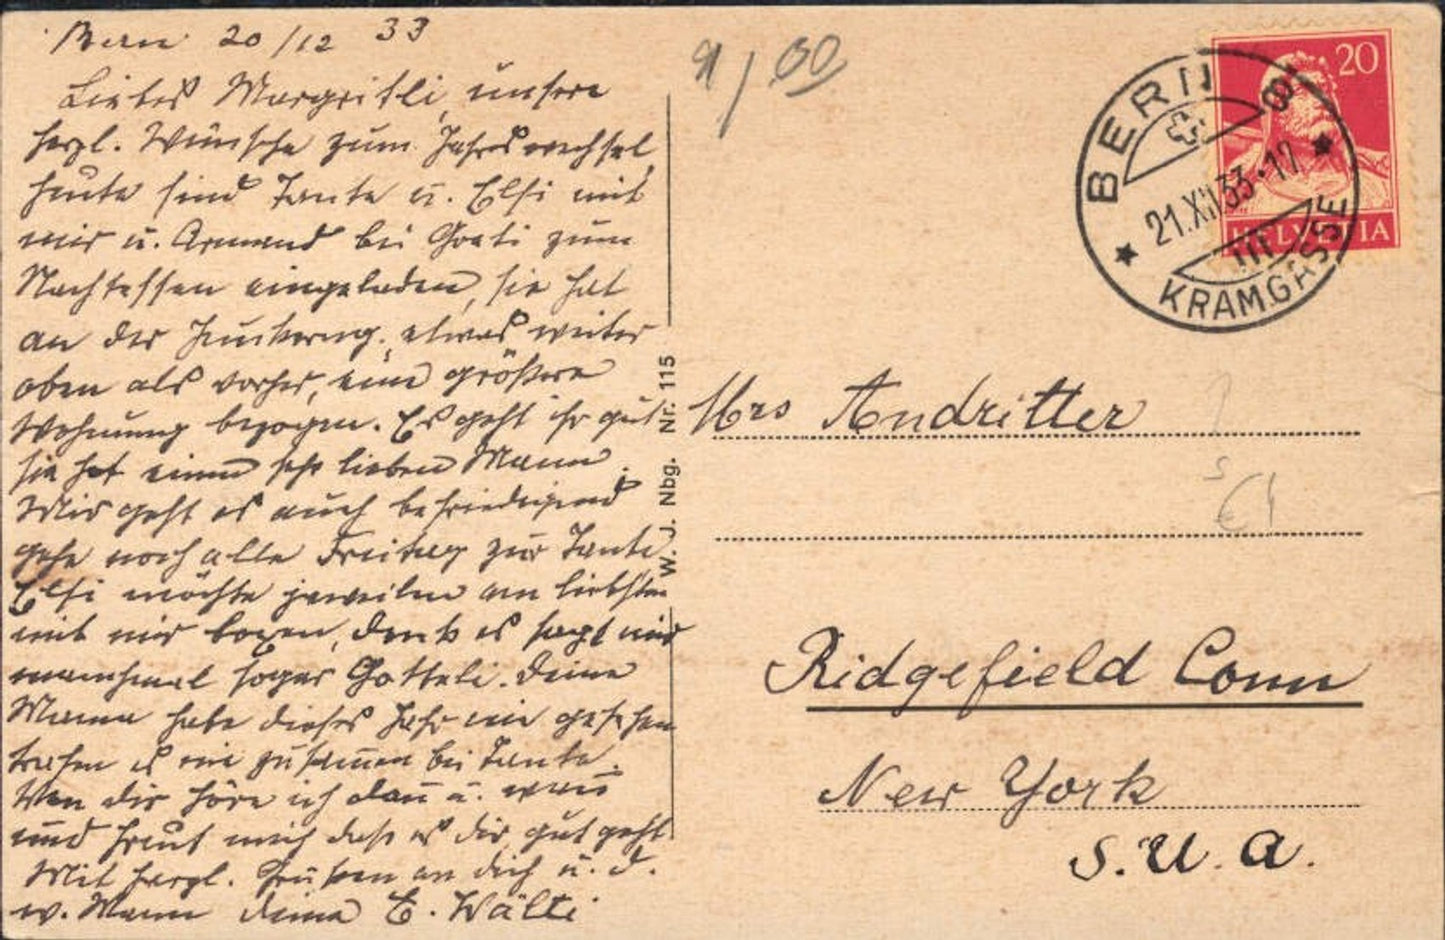 Bern 20/12 33
Liebes Margritli, unsere
herzl. Wünsche zum Jahreswechsel,
heute sind Tante u. Elsi mit
mir u. Armand bei Greti zum
Nachtessen eingeladen, sie hat
an der etwas weiter
oben als vorher, eine größere
Wohnung bezogen. Es geht ihr gut
sie hat einen sehr lieben Mann.
Mir geht es auch befriedigend
gehe noch alle Freitag zur Tante.
Elsi möchte jeweilen am liebsten
mit mir boxen, denk es sagt mir
manchmal sogar Gotteli. Deine
Mama habe dieses Jahr nie gesehen
trafen es nie zusammen bei Tante.
Von dir höre ich dann u. wann
und freut mich daß es dir gut geht.
Mit herzl. Grüßen an dich u. d.
w. Mann deine E. Wälti
W. J. Nbg. Nr. 115
BERN 8
21.XII.33
KRAMGASSE
20
HELVETIA
Mrs Andritter
Ridgefield Conn
New York
S. U. A.